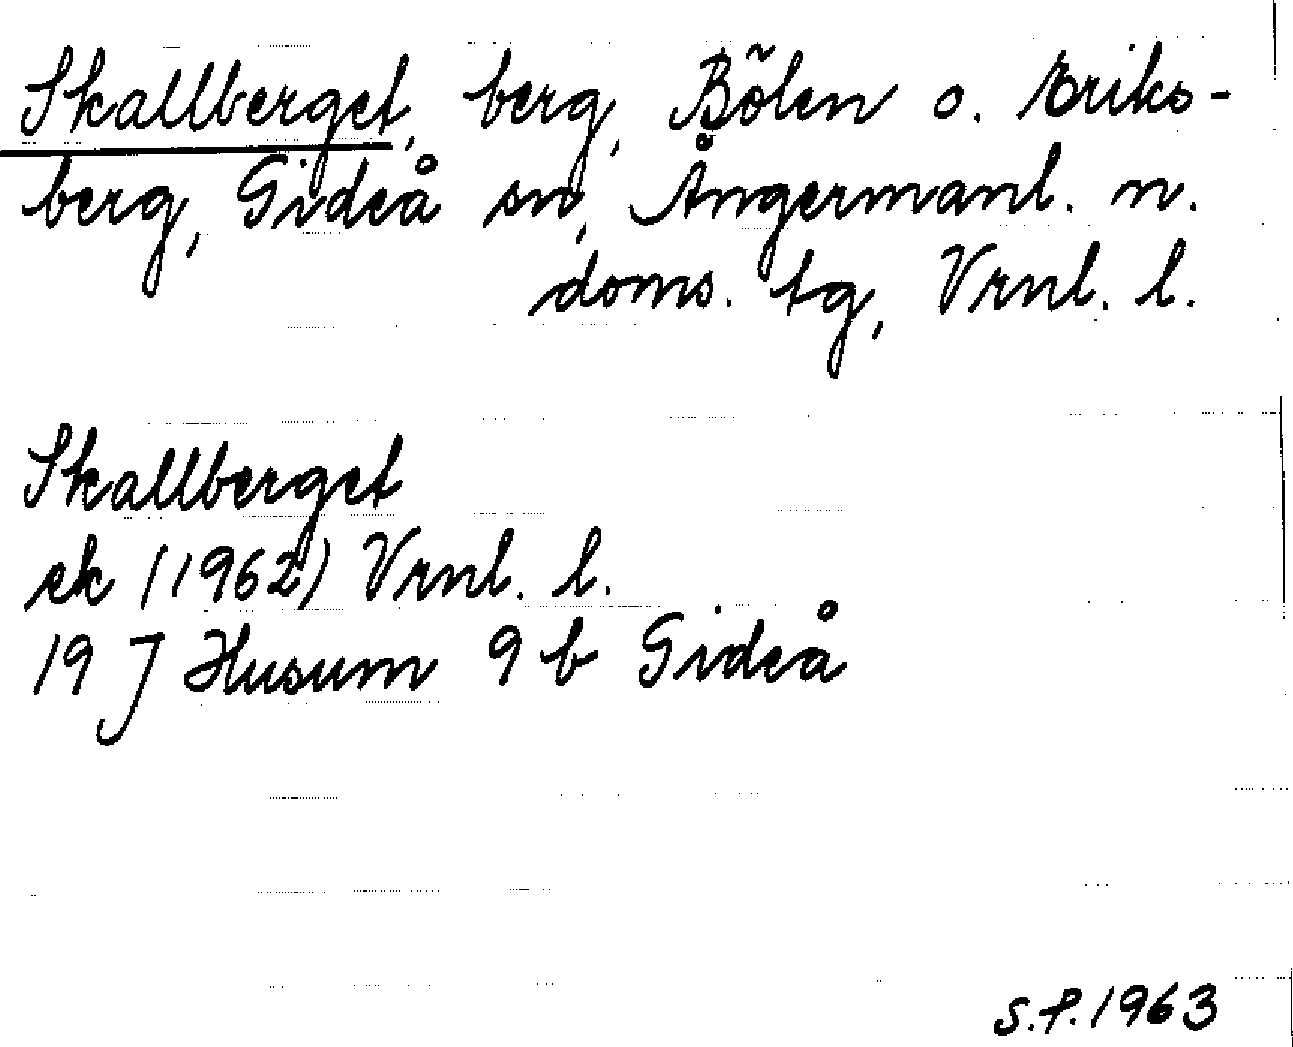 Skallberget, berg, Bölen o. Eriks-
berg, Gideå sn, Ångermanl. n.
doms. tg, Vrnl. l.
Skallberget
ek (1962) Vrnl. l.
19 J Husum 9 b Gideå
S.P. 1963